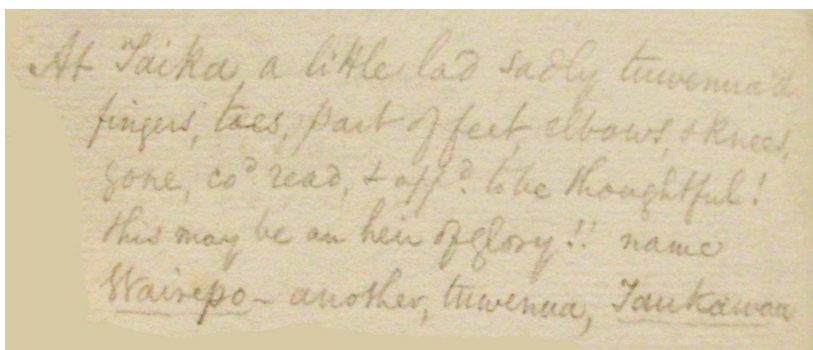 At Taika a little lad sadly tuwenua'd
fingers, toes, part of feet, elbows, & knees,
gone, cod. read, & appd. to be thoughtful!
this may be an heir of glory!! name
Wairepo – another, tuwenua, Taukawau